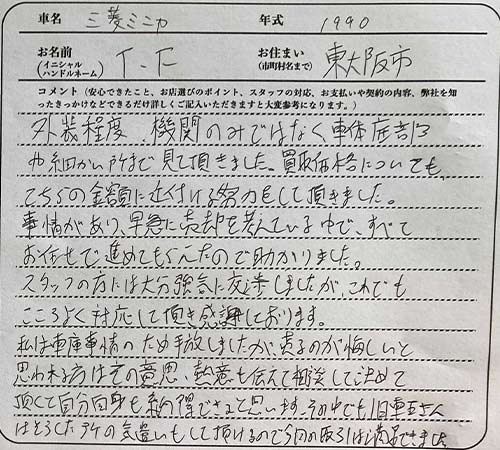 車名 三菱ミニカ 年式 1990
お名前 (イニシャル ハンドルネーム) T.F お住まい (市町村名まで) 東大阪市
コメント (安心できたこと、お店選びのポイント、スタッフの対応、お支払いや契約の内容、弊社を知
ったきっかけなどできるだけ詳しくご記入いただきますと大変参考になります。)
外装程度、機関のみではなく車体底部
や細かい所まで見て頂きました。買取価格についても、
こちらの金額に近付ける努力をして頂きました。
事情があり、早急に売却を考えている中で、すべて
お任せで進めてもらえたので助かりました。
スタッフの方には大分強気に交渉しましたが、これでも
こころよく対応して頂き感謝しております。
私は車庫事情のため手放しましたが、売るのが悔しいと
思われる方はその意思、熱意も伝えて相談して決めて
頂くて自分自身も納得できると思います。その中でも旧車王さん
はそうした所の気遣いもして頂けるので今回の取引は満足できました